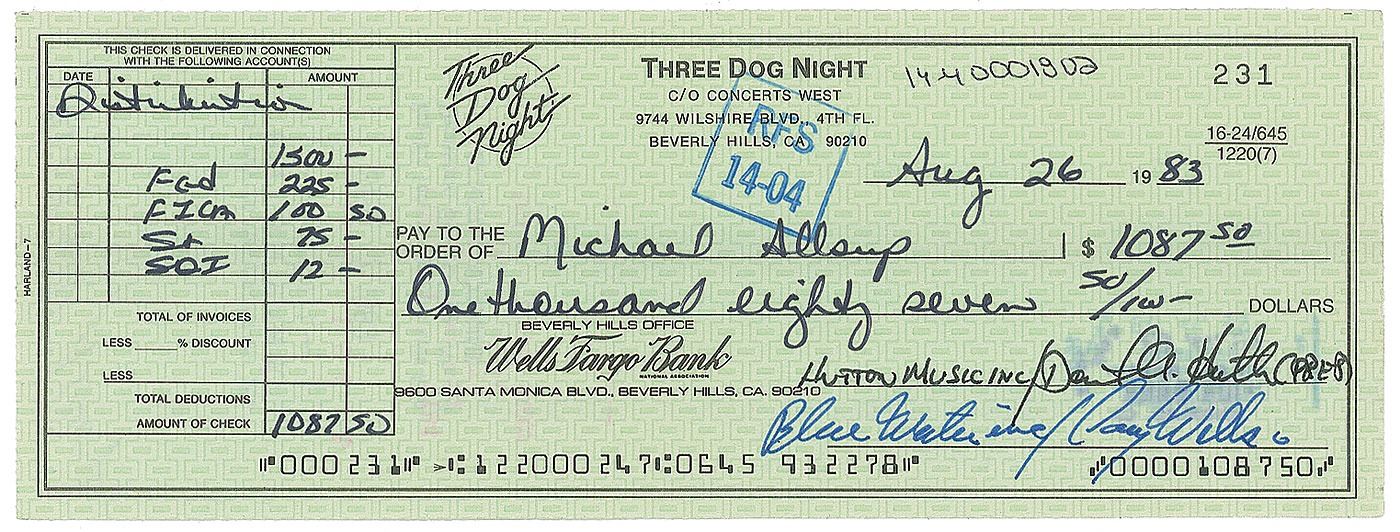 THIS CHECK IS DELIVERED IN CONNECTION
WITH THE FOLLOWING ACCOUNT(S)
DATE AMOUNT
Distribution
1500 –
Fed 225 –
FICA 100 50
St 75 –
SDI 12 –
TOTAL OF INVOICES
LESS ____% DISCOUNT
LESS
TOTAL DEDUCTIONS
AMOUNT OF CHECK 1087 50
HARLAND–7
Three
Dog
Night
THREE DOG NIGHT
C/O CONCERTS WEST
9744 WILSHIRE BLVD., 4TH FL.
BEVERLY HILLS, CA 90210
RFS
14-04
1440001902
231
16-24/645
1220(7)
Aug 26 19 83
PAY TO THE
ORDER OF Michael Allsup $ 1087 50
One thousand eighty seven 50/100 – DOLLARS
BEVERLY HILLS OFFICE
Wells Fargo Bank
NATIONAL ASSOCIATION
9600 SANTA MONICA BLVD., BEVERLY HILLS, CA. 90210
HUTTON MUSIC INC/ (PRES)
Blue Water inc/ Cory Wells
⑈000231⑈ ⑆122000247⑆0645 932278⑈ ⑇0000108750⑇